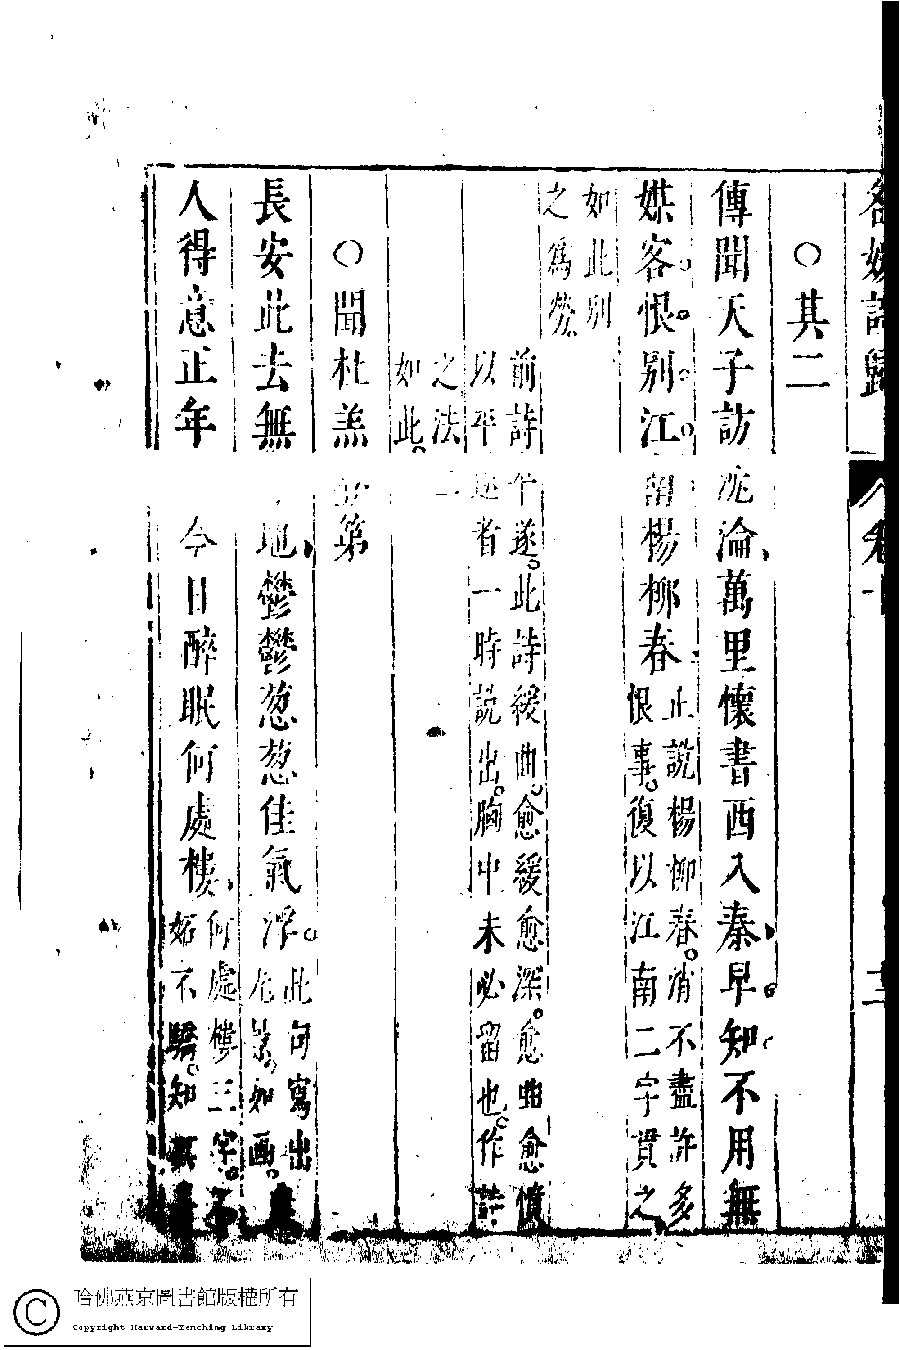 名媛詩歸
○其二
傳聞天子訪沉淪萬里懷書西入秦早知不用無
媒客恨別江南楊柳春
止說楊柳春消不盡許多
恨事復以江南二字貫之
如此別
之為勞
前詩午遂此詩緩曲愈緩愈深愈曲愈憤
以平述者一時說出胸中未必留也作詩
之法
如此
○聞杜羔第
長安此去無地鬱鬱葱葱佳氣浮
此句寫出
光景如画
人得意正年今日醉眠何處樓
何處樓三字不
妬不驕知
哈佛燕京圖書館版權所有
Copyright Harvard-Yenching Library